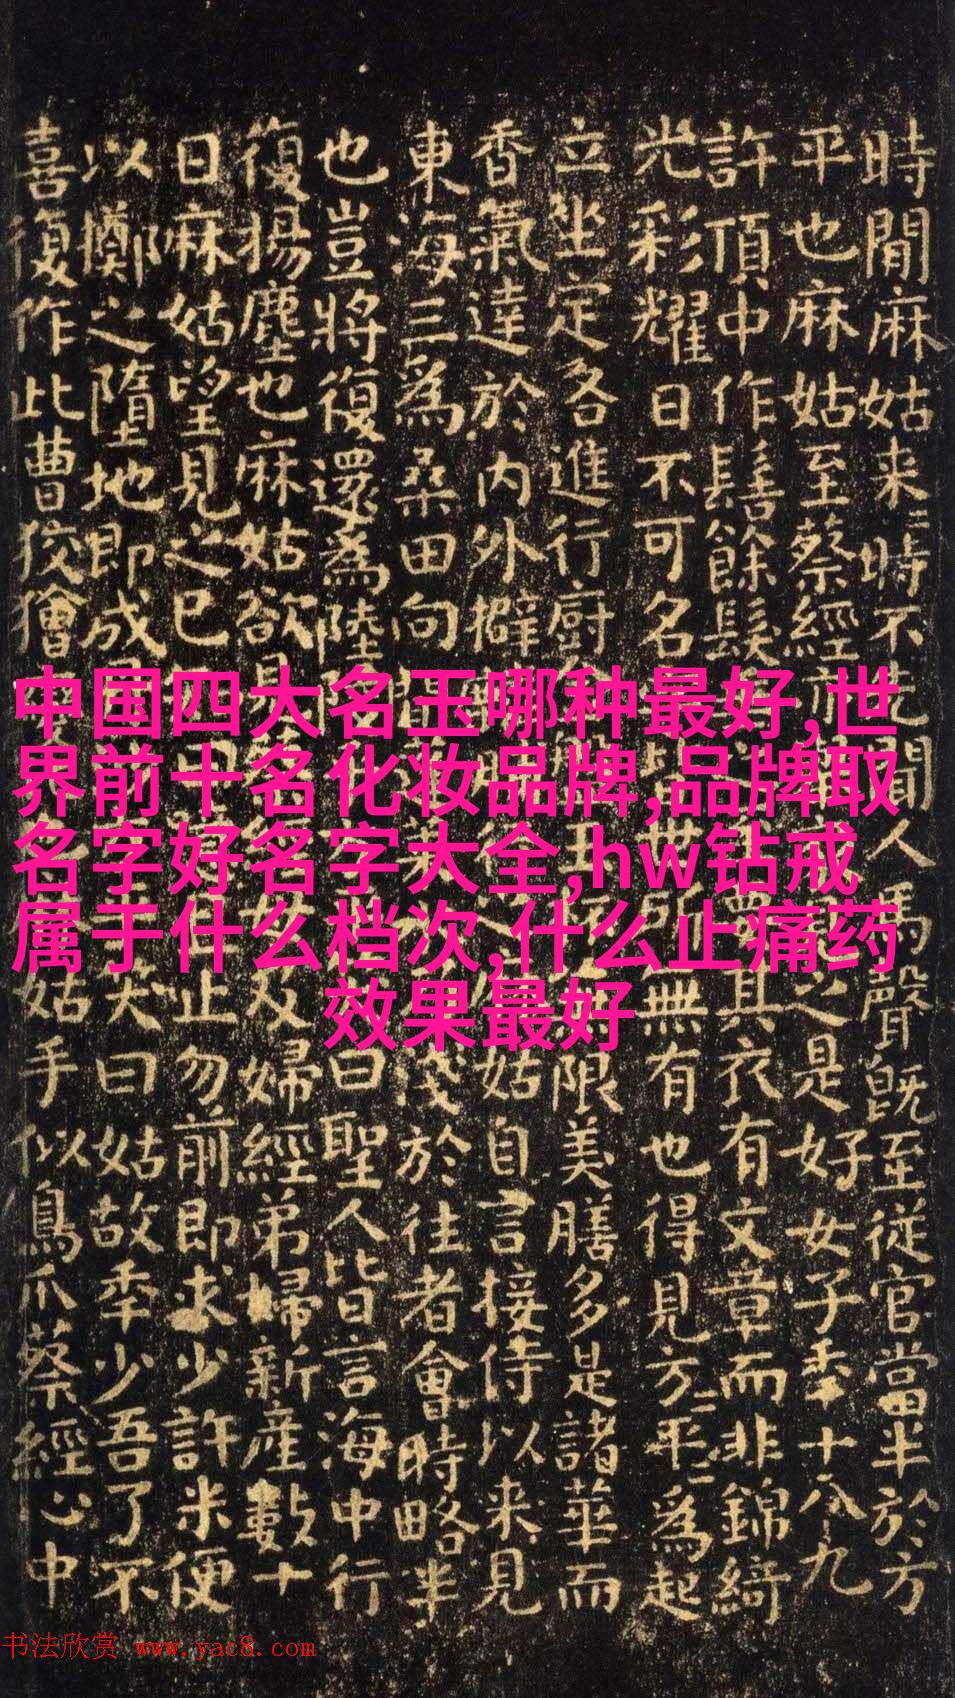 時間麻姑来〻時不聞人馬聲既至従官當半於方
平也麻姑至蔡經之是好女子年十八九
許頂中作髻餘髮其衣有文章而非錦綺
光彩耀日不可名無有也得見方〻平〻為起
立坐定各進行廚限美膳多是諸華而
香氣達於内外擗姑自言接侍以来見
東海三為桑田向淺於往者會時略半
也豈將復還為陸曰聖人皆言海中行
復揚塵也麻姑欲見及婦經弟婦新産數十
日麻姑望見之已止勿前即求少許米便
以擲之墮地即成笑曰姑故年少吾了不
喜復作此曹狡獪姑手似鳥爪蔡經心中
中国四大名玉哪种最好,世
界前十名化妆品牌,品牌取
名字好名字大全,hw钻戒
属于什么档次,什么止痛药
效果最好
书法欣赏 www.yac8.com